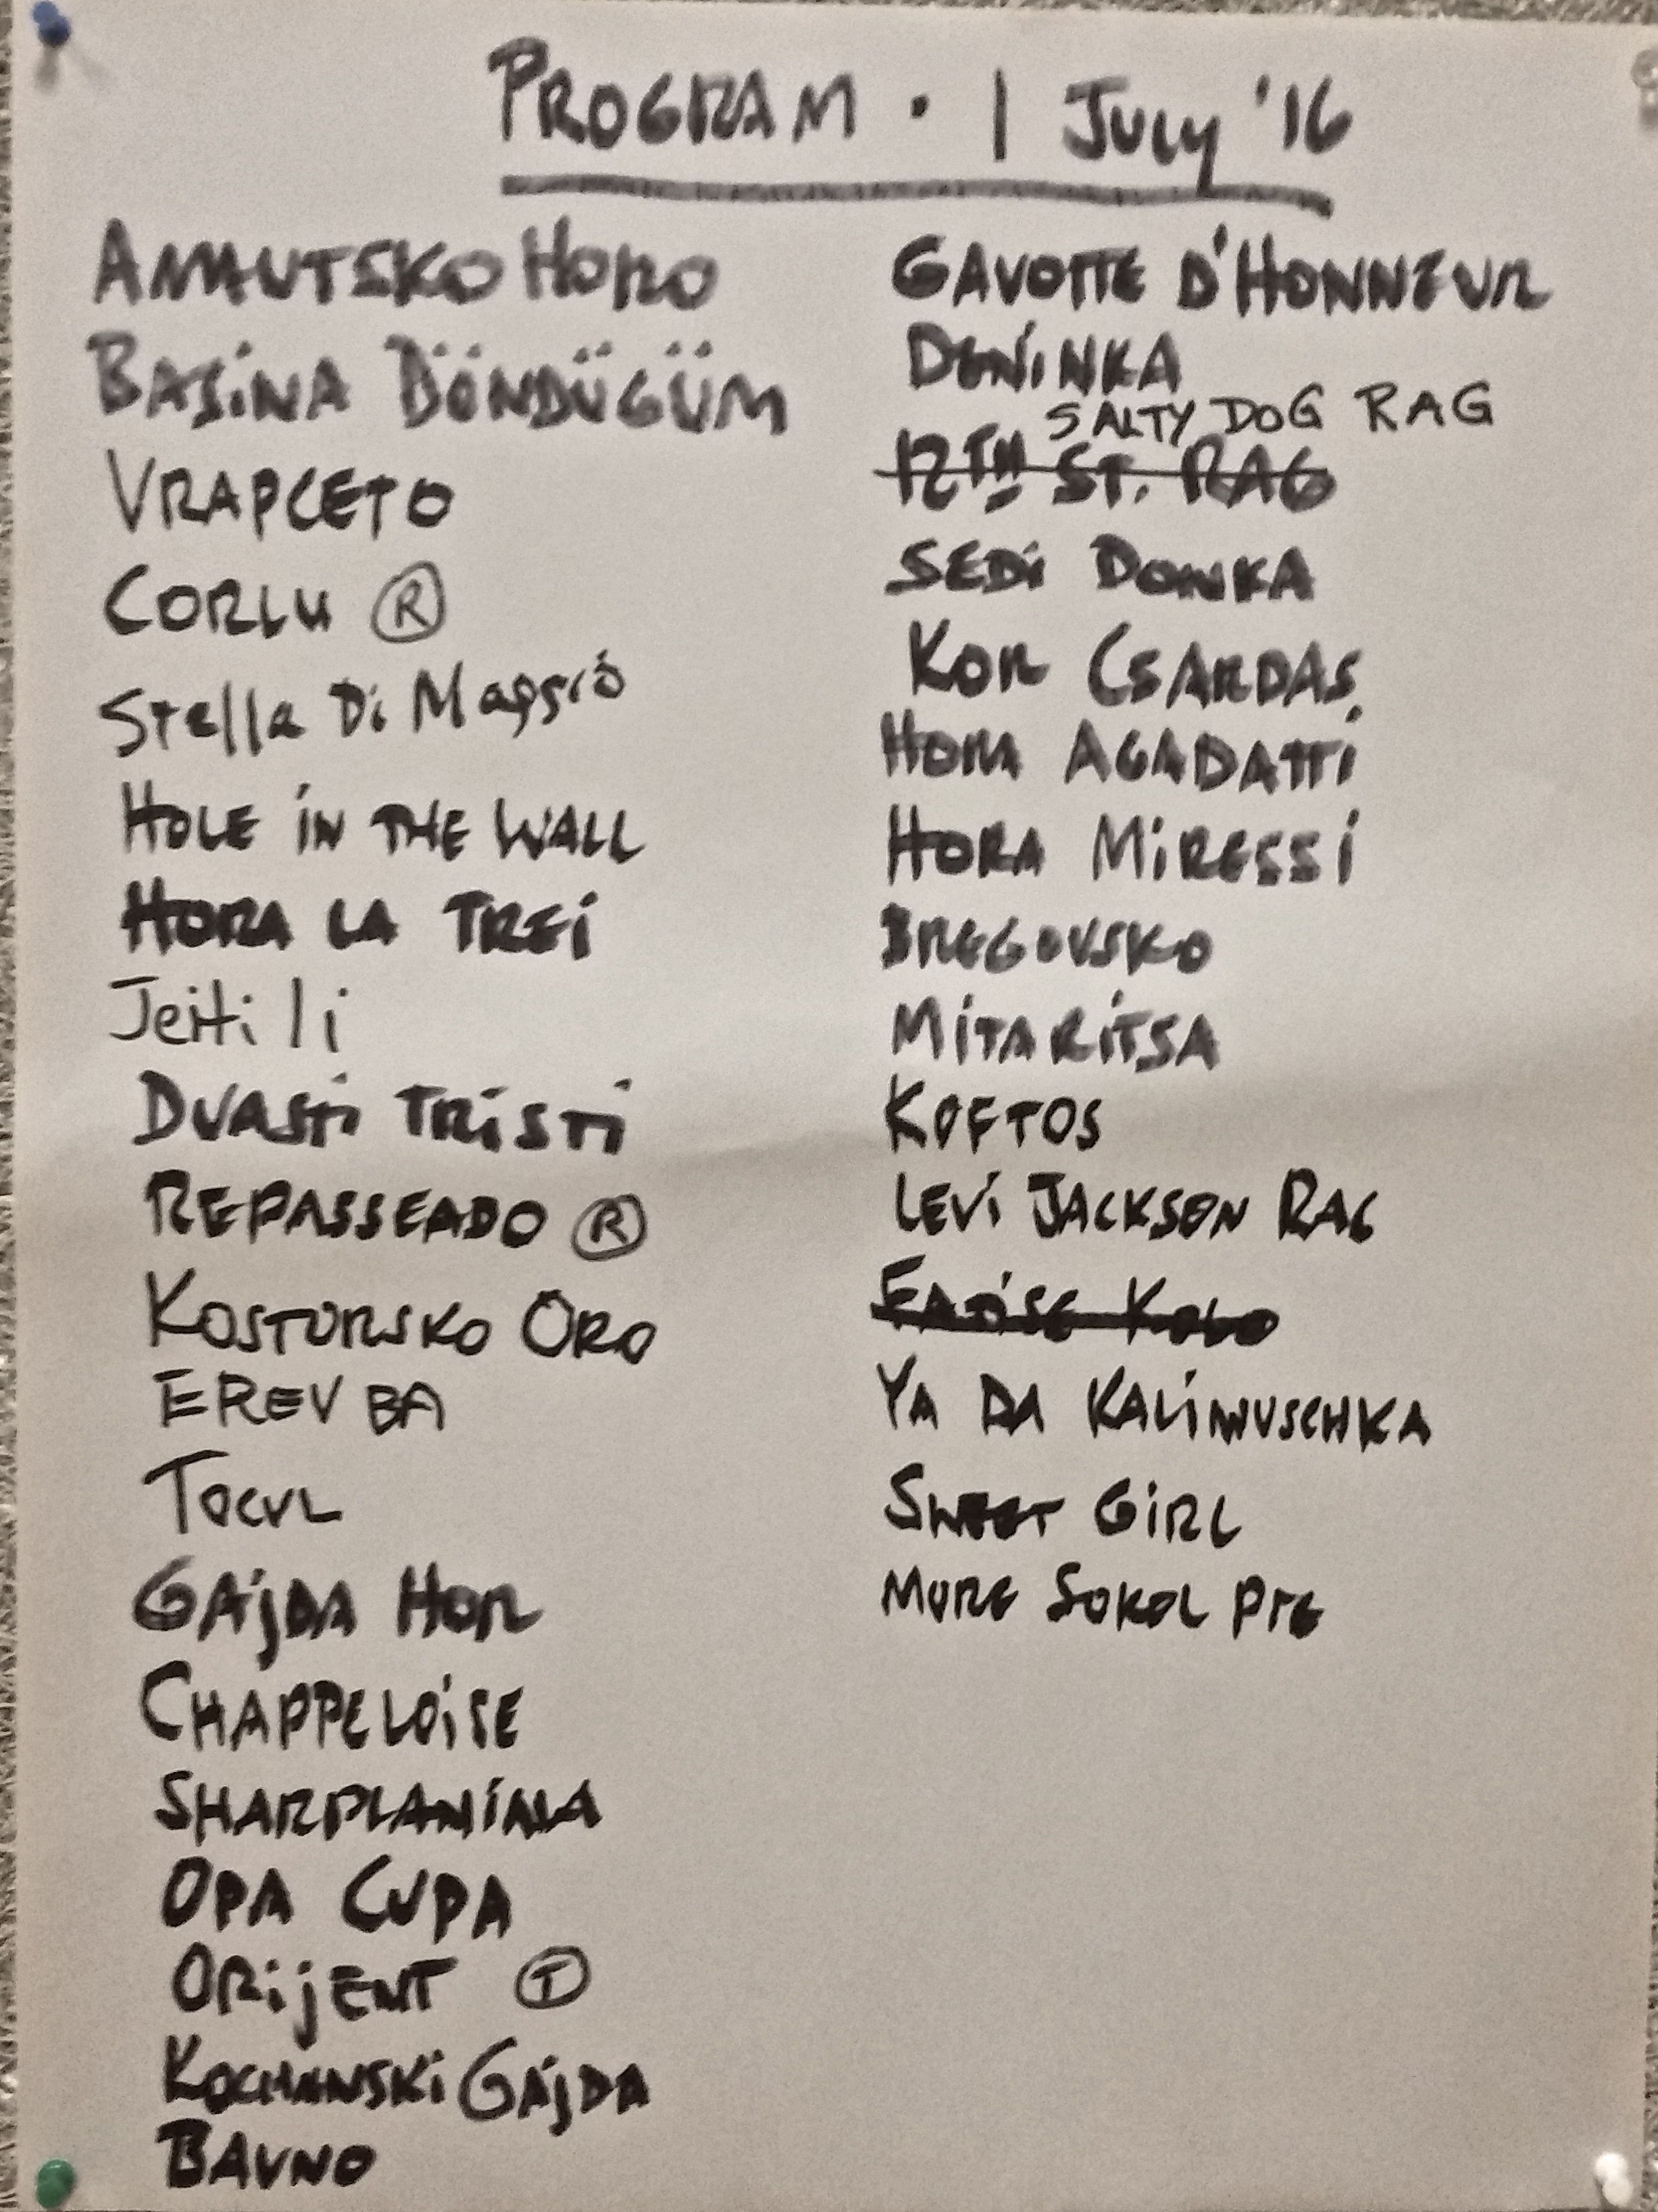 PROGRAM · 1 JULY '16
ARNAUTSKO HORO
BASINA DÖNDÜGÜM
VRAPCETO
CORLU Ⓡ
Stella Di Maggio
HOLE IN THE WALL
HORA LA TREI
Jeiti li
DVASTI TRISTI
REPASSEADO Ⓡ
KOSTURSKO ORO
EREV BA
TOCUL
GAJDA HOR
CHAPPELOISE
SHARPLANINA
OPA CUPA
ORIJENT Ⓣ
KOCHANSKI GAJDA
BAVNO
GAVOTTE D'HONNEUR
DENINKA
SALTY DOG RAG
12TH ST. RAG
SEDI DONKA
KOR CSARDAS
HORA AGADATTI
HORA MIRESSI
BREGOVSKO
MITARITSA
KOFTOS
LEVI JACKSON RAG
FATISE KOLO
YA DA KALINUSCHKA
SWEET GIRL
MORE SOKOL PIE